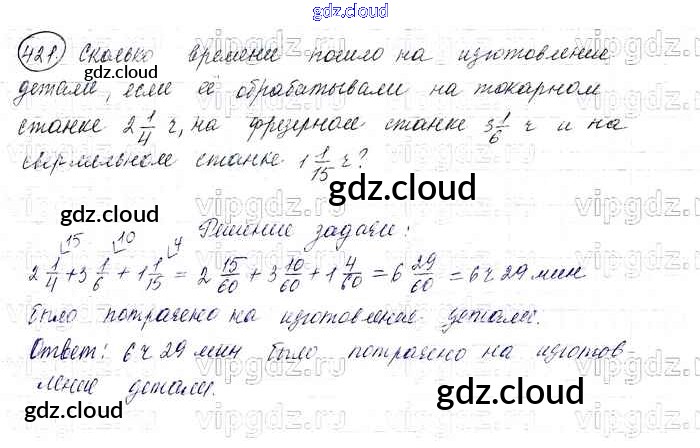 gdz.cloud
421. Сколько времени пошло на изготовление
gdz.cloud
детали, если её обрабатывали на токарном
станке 2 1/4 ч, на фрезерном станке 3 1/6 ч и на
сверлильном станке 1 1/15 ч?
gdz.cloud
gdz.cloud
Решение задачи:
15 10 4
2 1/4 + 3 1/6 + 1 1/15 = 2 15/60 + 3 10/60 + 1 4/60 = 6 29/60 = 6 ч 29 мин
было потрачено на изготовление детали.
Ответ: 6 ч 29 мин было потрачено на изготов
ление детали.
gdz.cloud
gdz.cloud
vipgdz.ru